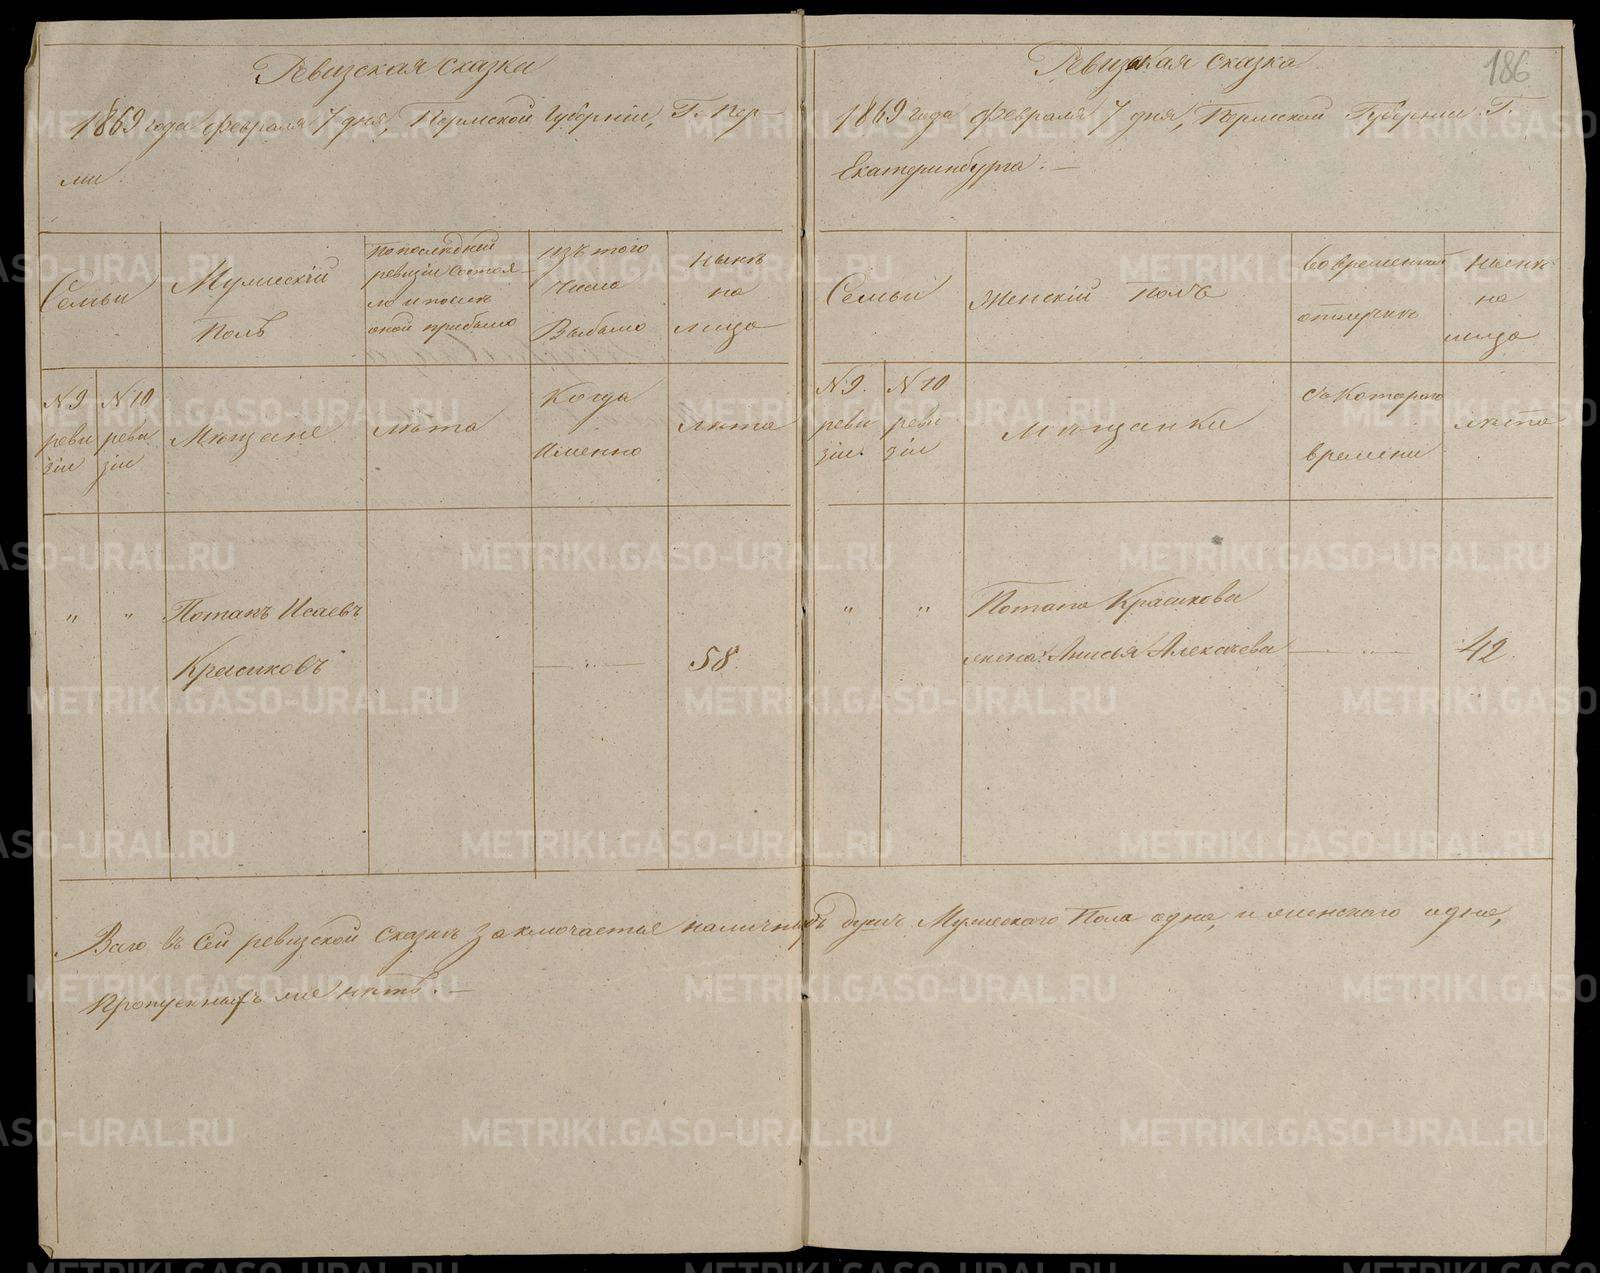 Ревизская сказка
1869 года февраля 7 дня, Пермской Губернiи, Г. Пер-
ми.
Семьи
Мужескiй
Полъ
По последней
ревизiи состоя-
ло и после
оной прибыло
Изъ того
числа
Выбыло
Ныне
на
лицо
№ 9
реви
зiи
№ 10
реви
зiи
Мещане
лета
Когда
Именно
лета
" " Потапъ Исаевъ
Красиковъ — " — 58.
186
Ревизская сказка
1869 года февраля 7 дня, Пермской Губернiи Г.
Екатеринбурга. —
Семьи
Женскiй полъ
Во временной
отлучке
Ныне
на
лицо
№ 9.
реви
зiи.
№ 10
реви
зiи
Мещанки
Съ котораго
времени
лета
" " Потапа Красикова
жена Анисья Алексеева — " — 42.
Всего въ сей ревизской сказке заключается наличныхъ душъ Мужескаго Пола одна, и женскаго одна,
Пропускныхъ не нетъ. —
METRIKI.GASO-URAL.RU